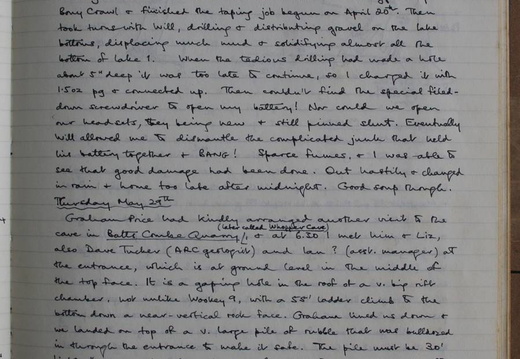 Bony Crawl & finished the taping job begun on April 20th. Then
took turns with Will, drilling & distributing gravel on the lake
bottoms, displacing much mud & solidifying almost all the
bottom of lake 1. When the tedious drilling had made a hole
about 5" deep it was too late to continue, so I charged it with
1.5oz pg & connected up. Then couldn't find the special filed-
down screwdriver to open my battery! Nor could we open
our headsets, they being new & still pinned shut. Eventually
Will allowed me to dismantle the complicated junk that held
his battery together & BANG! Sparce fumes, & I was able to
see that good damage had been done. Out hastily & changed
in rain & home too late after midnight. Good soup though.
Thursday May 29th
Graham Price had kindly arranged another visit to the
(later called Whopper Cave)
cave in Batts Combe Quarry, & at 6.30 I met him & Liz,
also Dave Tucker (ARC geologist) and Ian ? (asst. manager) at
the entrance, which is at ground level in the middle of
the top face. It is a gaping hole in the roof of a v. big rift
chamber, not unlike Wookey 9, with a 55' ladder climb to the
bottom down a near-vertical rock face. Graham lined us down &
we landed on top of a v. large pile of rubble that was bulldozed
in through the entrance to make it safe. The pile must be 30'